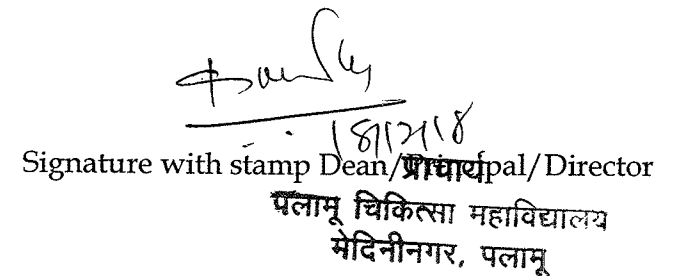 Signature with stamp Dean/Principal/Director
प्राचार्य
पलामू चिकित्सा महाविद्यालय
मेदिनीनगर, पलामू